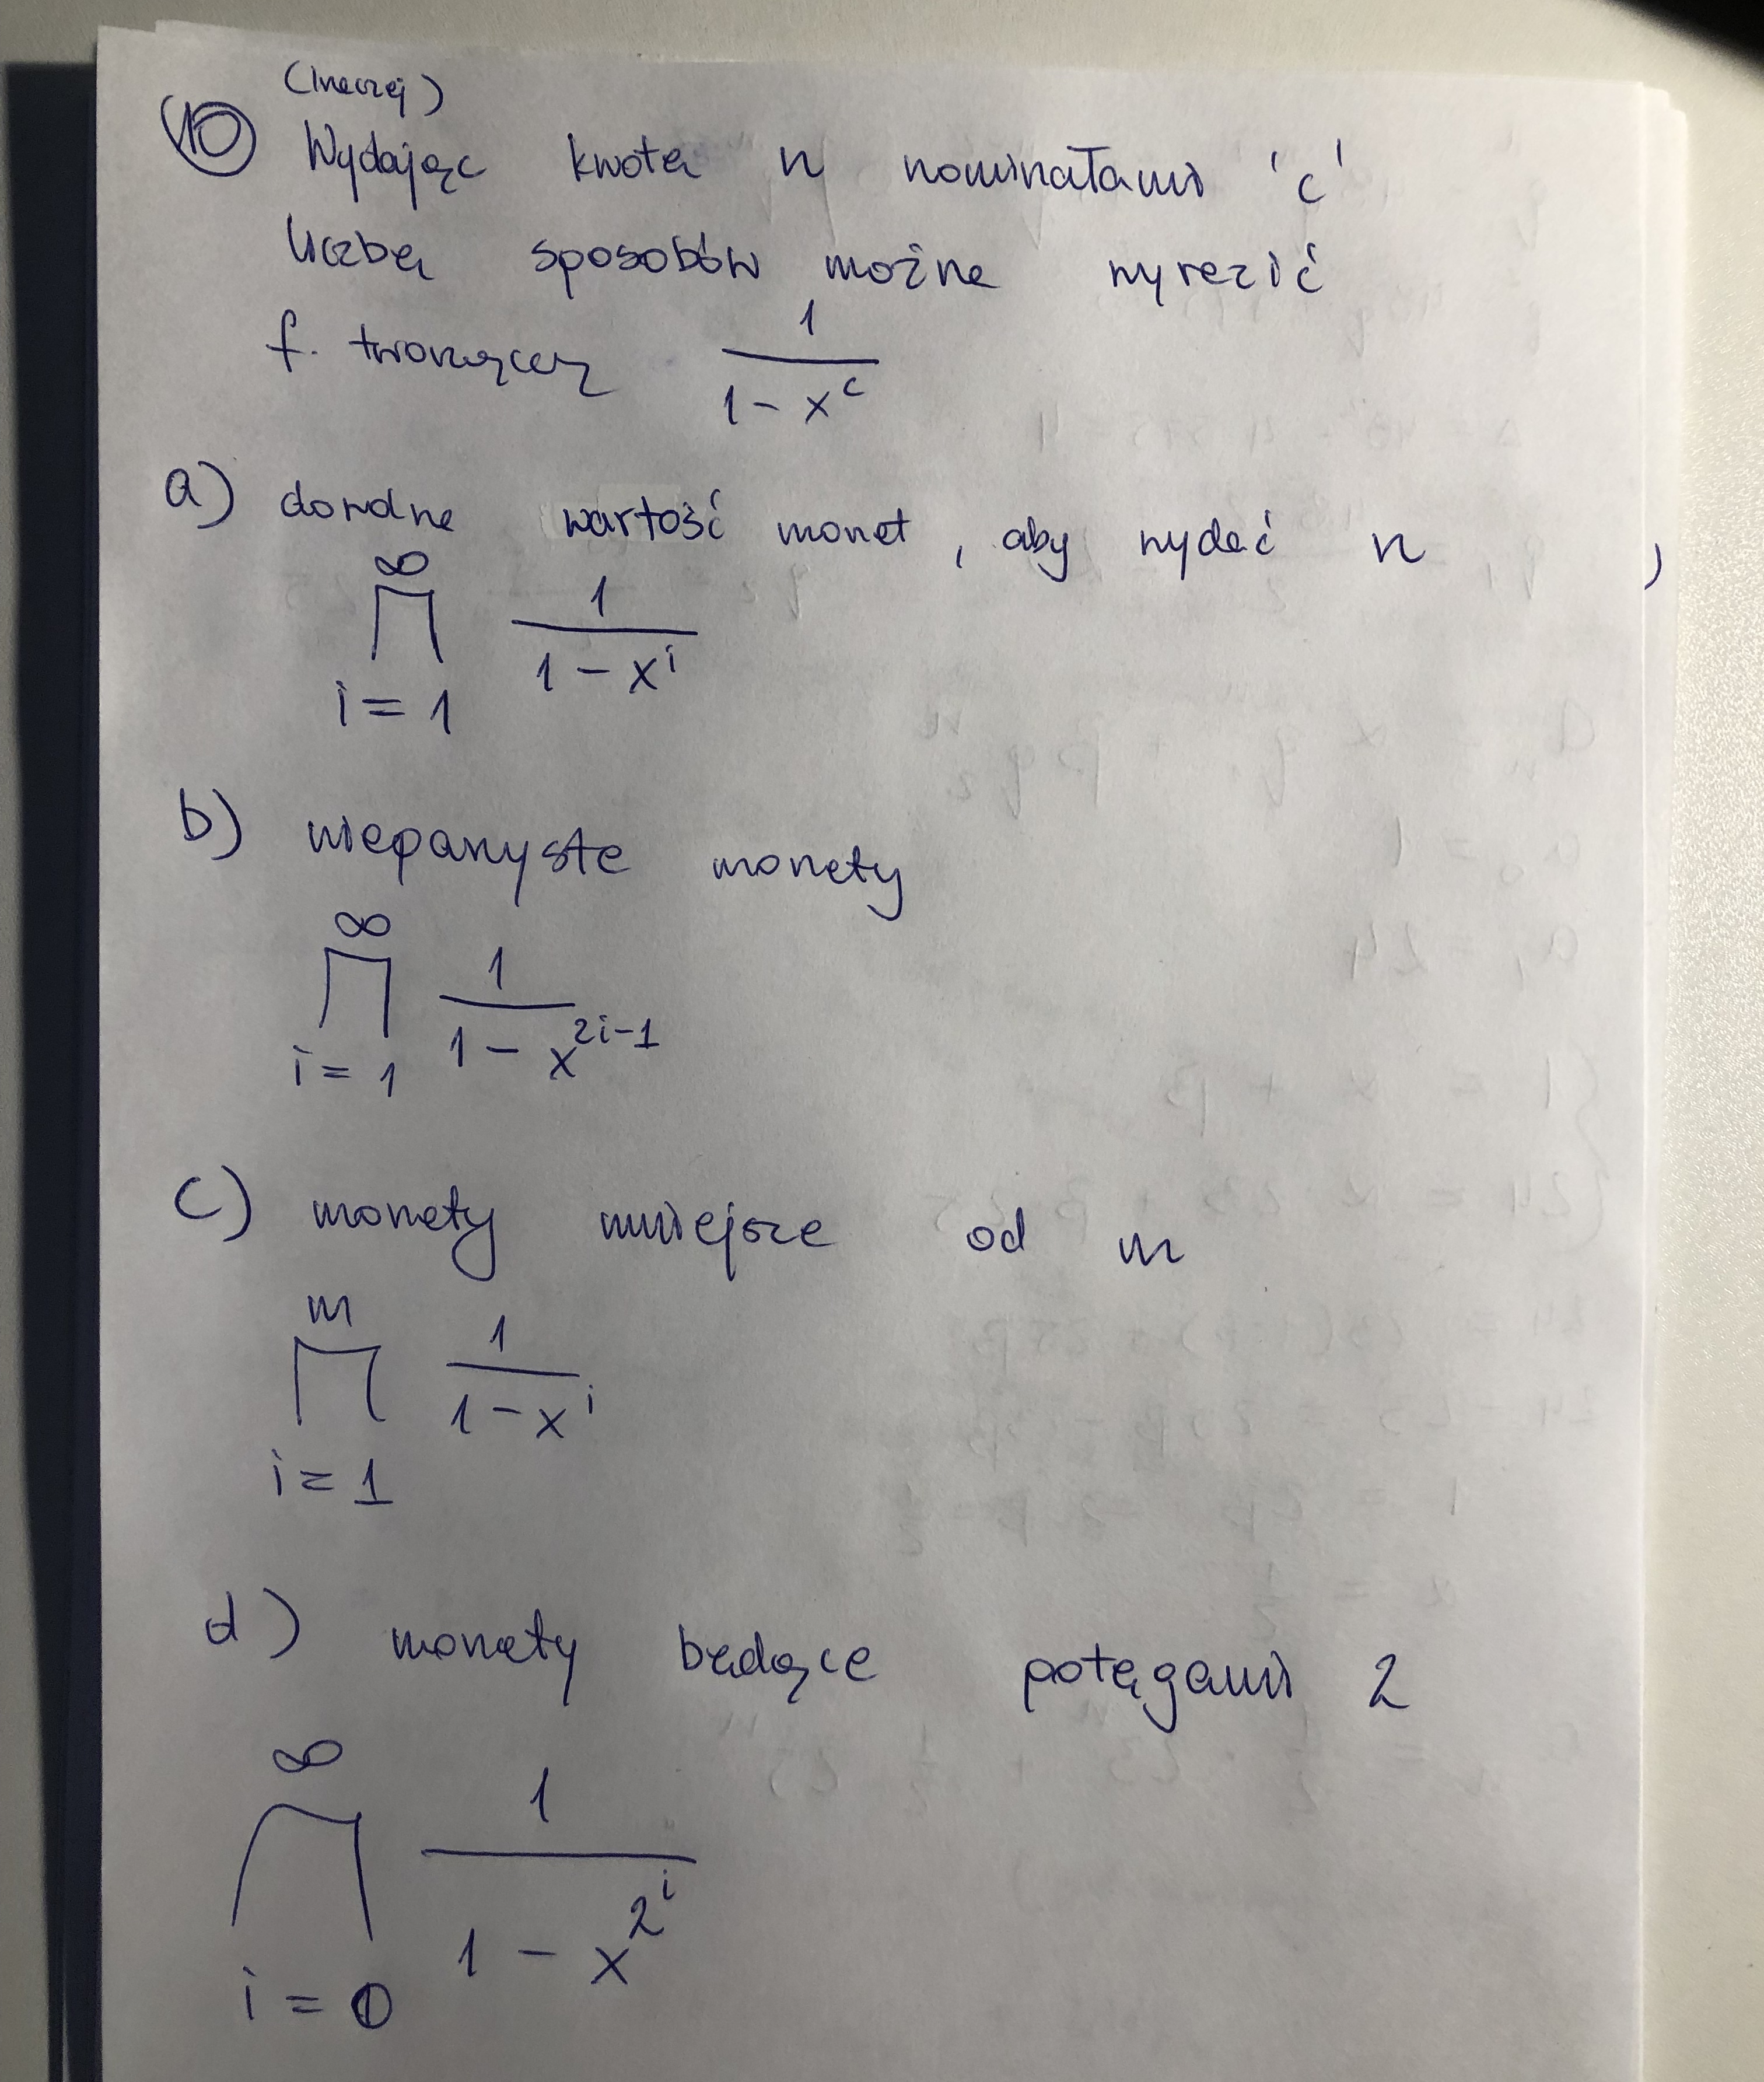 (Inaczej)
10 Wydając kwotę n nominałami 'c'
liczbę sposobów można wyrazić
f. tworzącą 1/(1-x^c)
a) dowolna wartość monet, aby wydać n,
∞
∏ 1/(1-x^i)
i=1
b) nieparzyste monety
∞
∏ 1/(1-x^(2i-1))
i=1
c) monety mniejsze od m
m
∏ 1/(1-x^i)
i=1
d) monety będące potęgami 2
∞
∏ 1/(1-x^(2^i))
i=0